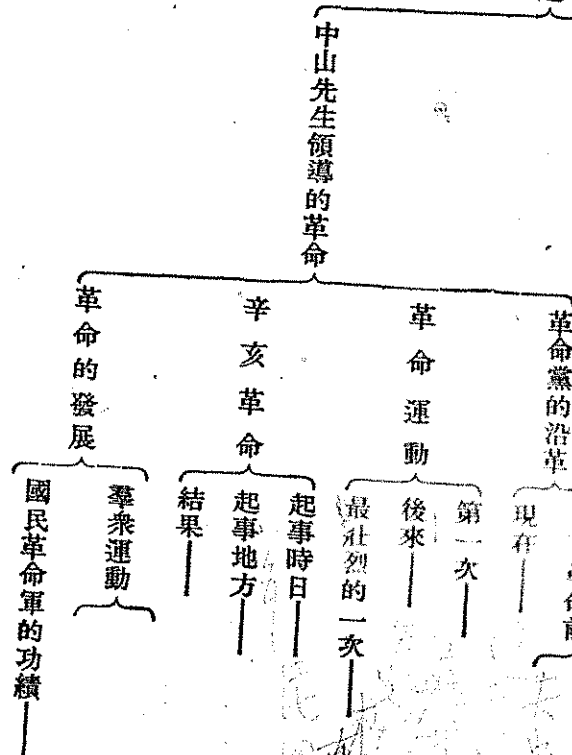 中山先生領導的革命
革命黨的沿革
命前
現在
革命運動
第一次
後來
最壯烈的一次
辛亥革命
起事時日
起事地方
結果
革命的發展
羣衆運動
國民革命軍的功績